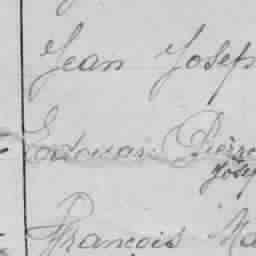 Jean Josep
Edouard Pierre
Josep
François Ma